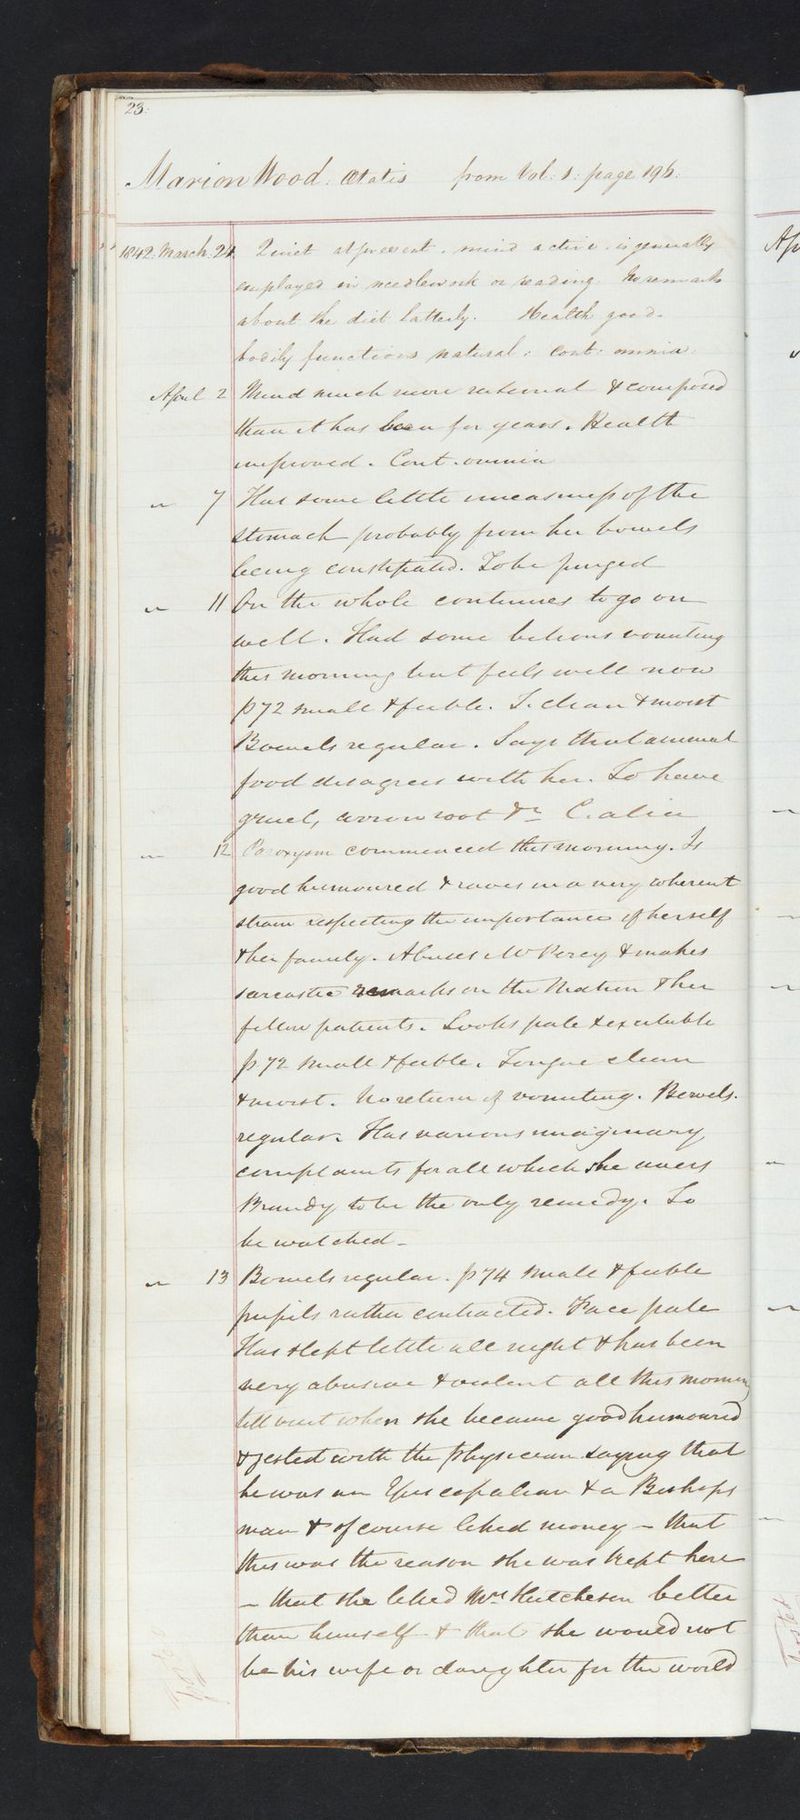 23.
Marion Wood. Ætatis from Vol: 1: page 196:
1842. March. 24. Quiet at present. mind active. is generally
employed in needlework or reading. No remarks
about the diet latterly. Health good.
bodily functions natural: Cont: omnia.
April 2 Mind much more rational & composed
than it has been for years. Health
improved. Cont. omnia
" 7 Has some little uneasiness of the
stomach probably from her bowels
being constipated. To be purged
" 11 On the whole continues to go on
well. Had some bilious vomiting
this morning but feels well now
p 72 small & feeble. T. clean & moist
Bowels regular. Says that animal
food disagrees with her. To have
gruel, arrow root &c C. alia
" 12 Paroxysm commenced this morning. Is
good humoured & raves in a very coherent
strain respecting the importance of herself
& her family. Abuses Mr Percy & makes
sarcastic remarks on the Matron & her
fellow patients. Looks pale & excitable
p 72 small & feeble. Tongue clean
& moist. No return of vomiting. Bowels.
regular. Has various imaginary
complaints for all which she avers
Brandy to be the only remedy. To
be watched -
" 13 Bowels regular. p 74 small & feeble
pupils rather contracted. Face pale
Has slept little all night & has been
very abusive & violent all this morning
till visit when she became good humoured
& jested with the Physician saying that
he was an Episcopalian & a Bishops
man & of course liked money - that
this was the reason she was kept here
- that she liked Mrs Hutcheson better
than himself & that she would not
be his wife or daughter for the world
Ap